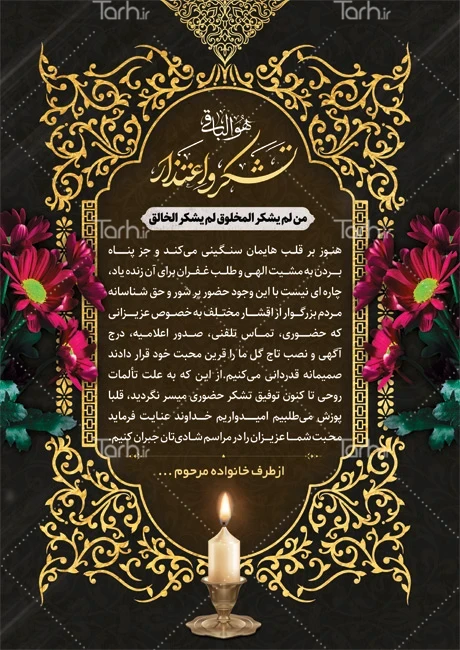 هو الباقی
تشکر و اعتذار
من لم یشکر المخلوق لم یشکر الخالق
هنوز بر قلب هایمان سنگینی می‌کند و جز پناه
بردن به مشیت الهی و طلب غفران برای آن زنده یاد،
چاره ای نیست با این وجود حضور پر شور و حق شناسانه
مردم بزرگوار از اقشار مختلف به خصوص عزیزانی
که حضوری، تماس تلفنی، صدور اعلامیه، درج
آگهی و نصب تاج گل ما را قرین محبت خود قرار دادند
صمیمانه قدردانی می‌کنیم. از این که به علت تألمات
روحی تا کنون توفیق تشکر حضوری میسر نگردید، قلبا
پوزش می‌طلبیم امیدواریم خداوند عنایت فرماید
محبت شما عزیزان را در مراسم شادی‌تان جبران کنیم.
از طرف خانواده مرحوم ....
Tarh.ir